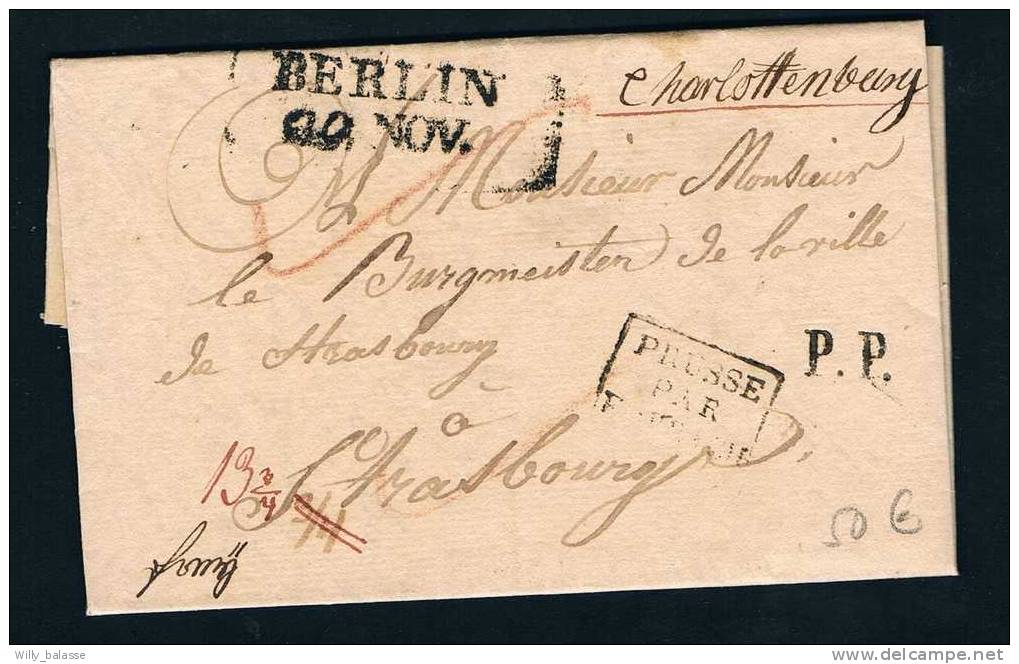 BERLIN
NOV.
Charlottenburg
A Monsieur Monsieur
le Burgmeister de la ville
de Strasbourg
à
Strasbourg
PRUSSE
PAR
P.P.
13 3/4
50 €
Willy_balasse
delcampe.net